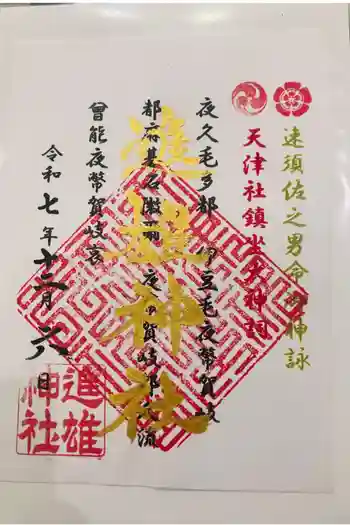 速須佐之男命御神詠
天津社鎮坐大神詞
夜久毛多都 伊豆毛夜幣賀岐
都麻碁微爾 夜幣賀岐都久流
曾能夜幣賀岐袁
進雄神社
令和七年十二月
進雄神社